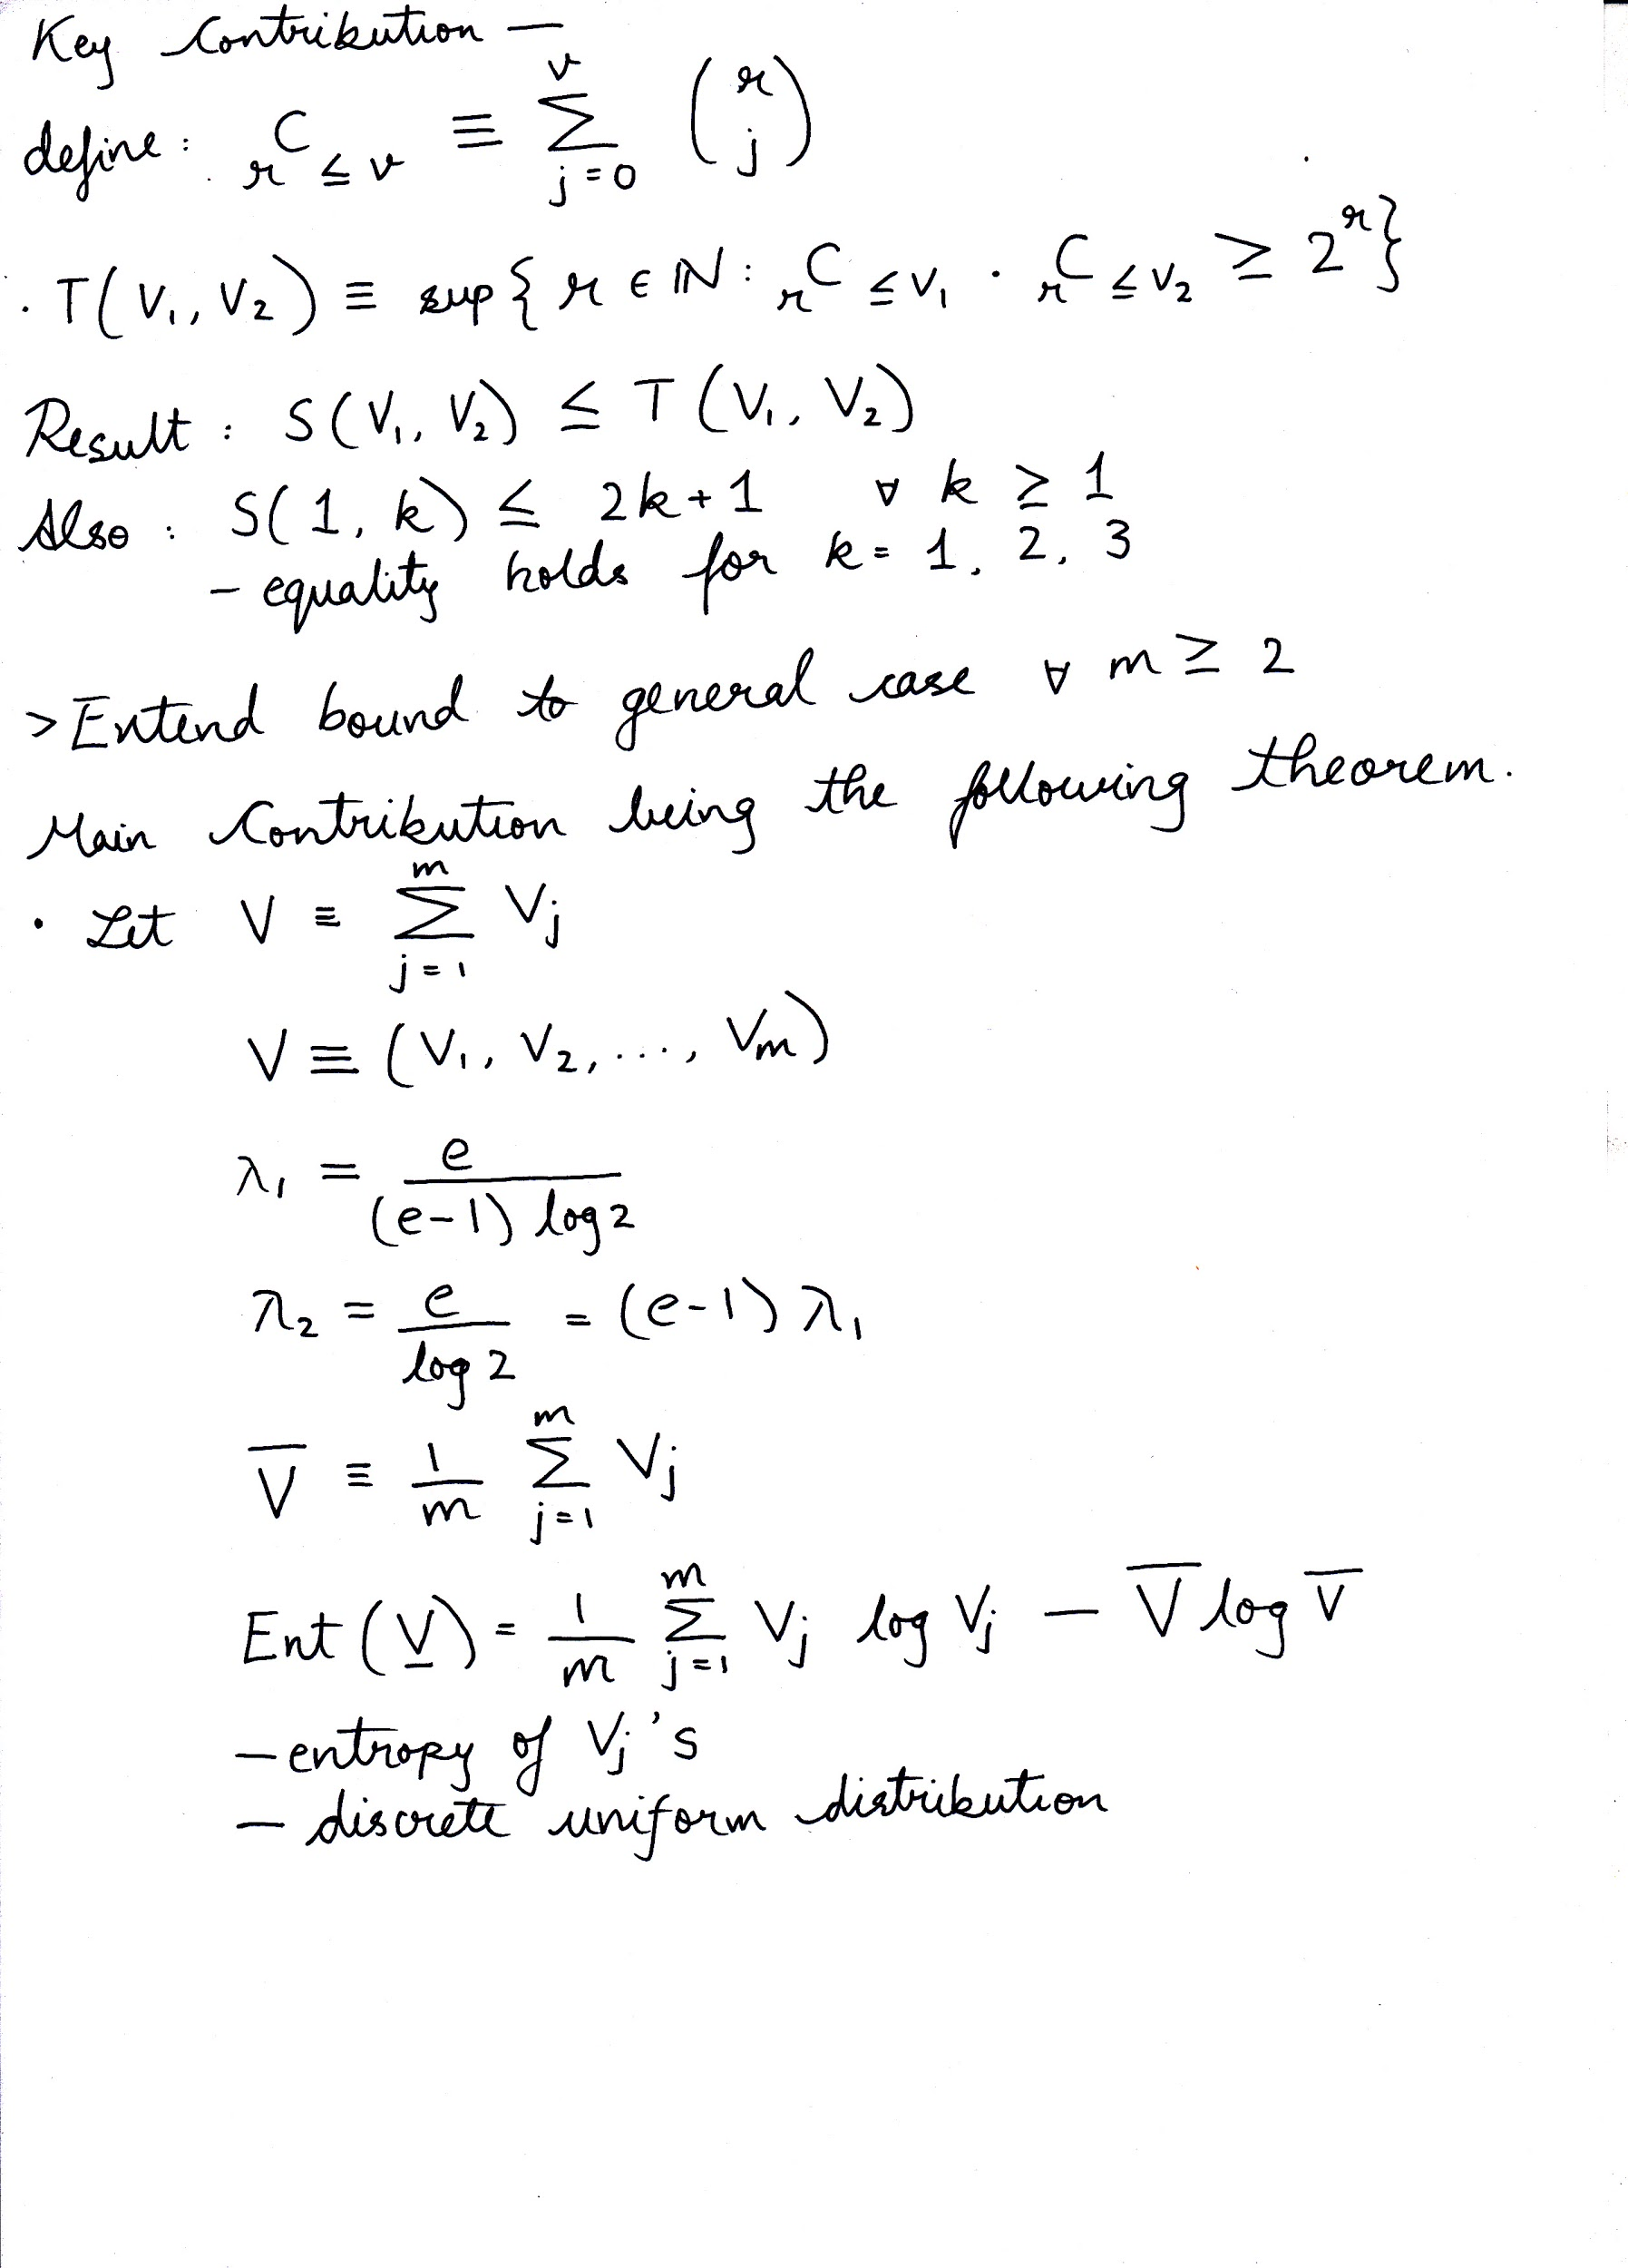 Key Contribution —
define : ᵣC≤v ≡ ∑_{j=0}^{v} (r j)
· T(V₁, V₂) ≡ sup{ r ∈ ℕ : ᵣC≤V₁ · ᵣC≤V₂ ≥ 2^r }
Result : S(V₁, V₂) ≤ T(V₁, V₂)
Also : S(1, k) ≤ 2k+1 ∀ k ≥ 1
– equality holds for k = 1, 2, 3
> Extend bound to general case ∀ m ≥ 2
Main Contribution being the following theorem.
· Let V ≡ ∑_{j=1}^{m} Vj
V ≡ (V₁, V₂, ..., Vm)
λ₁ = e / ((e-1) log 2)
λ₂ = e / log 2 = (e-1) λ₁
V̅ ≡ 1/m ∑_{j=1}^{m} Vj
Ent (V̲) = 1/m ∑_{j=1}^{m} Vj log Vj — V̅ log V̅
– entropy of Vj's
– discrete uniform distribution